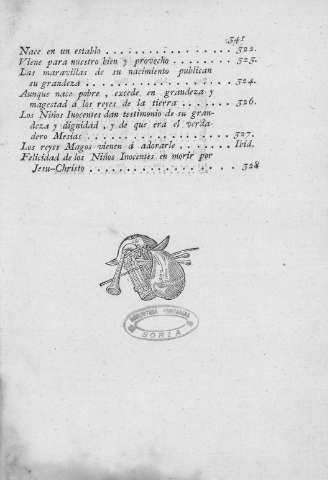 341
Nace en un establo . . . . . . . . . . . . . . . 322.
Viene para nuestro bien y provecho . . . . . . . . 323.
Las maravillas de su nacimiento publican
su grandeza . . . . . . . . . . . . . . . . . . 324.
Aunque nace pobre, excede en grandeza y
magestad á los reyes de la tierra . . . . . . . . 326.
Los Niños Inocentes dan testimonio de su gran-
deza y dignidad, y de que era el verda-
dero Mesias . . . . . . . . . . . . . . . . . . 327.
Los reyes Magos vienen á adorarle . . . . . . . Ibid.
Felicidad de los Niños Inocentes en morir por
Jesu-Christo . . . . . . . . . . . . . . . . . . 328
BIBLIOTECA
SORIA